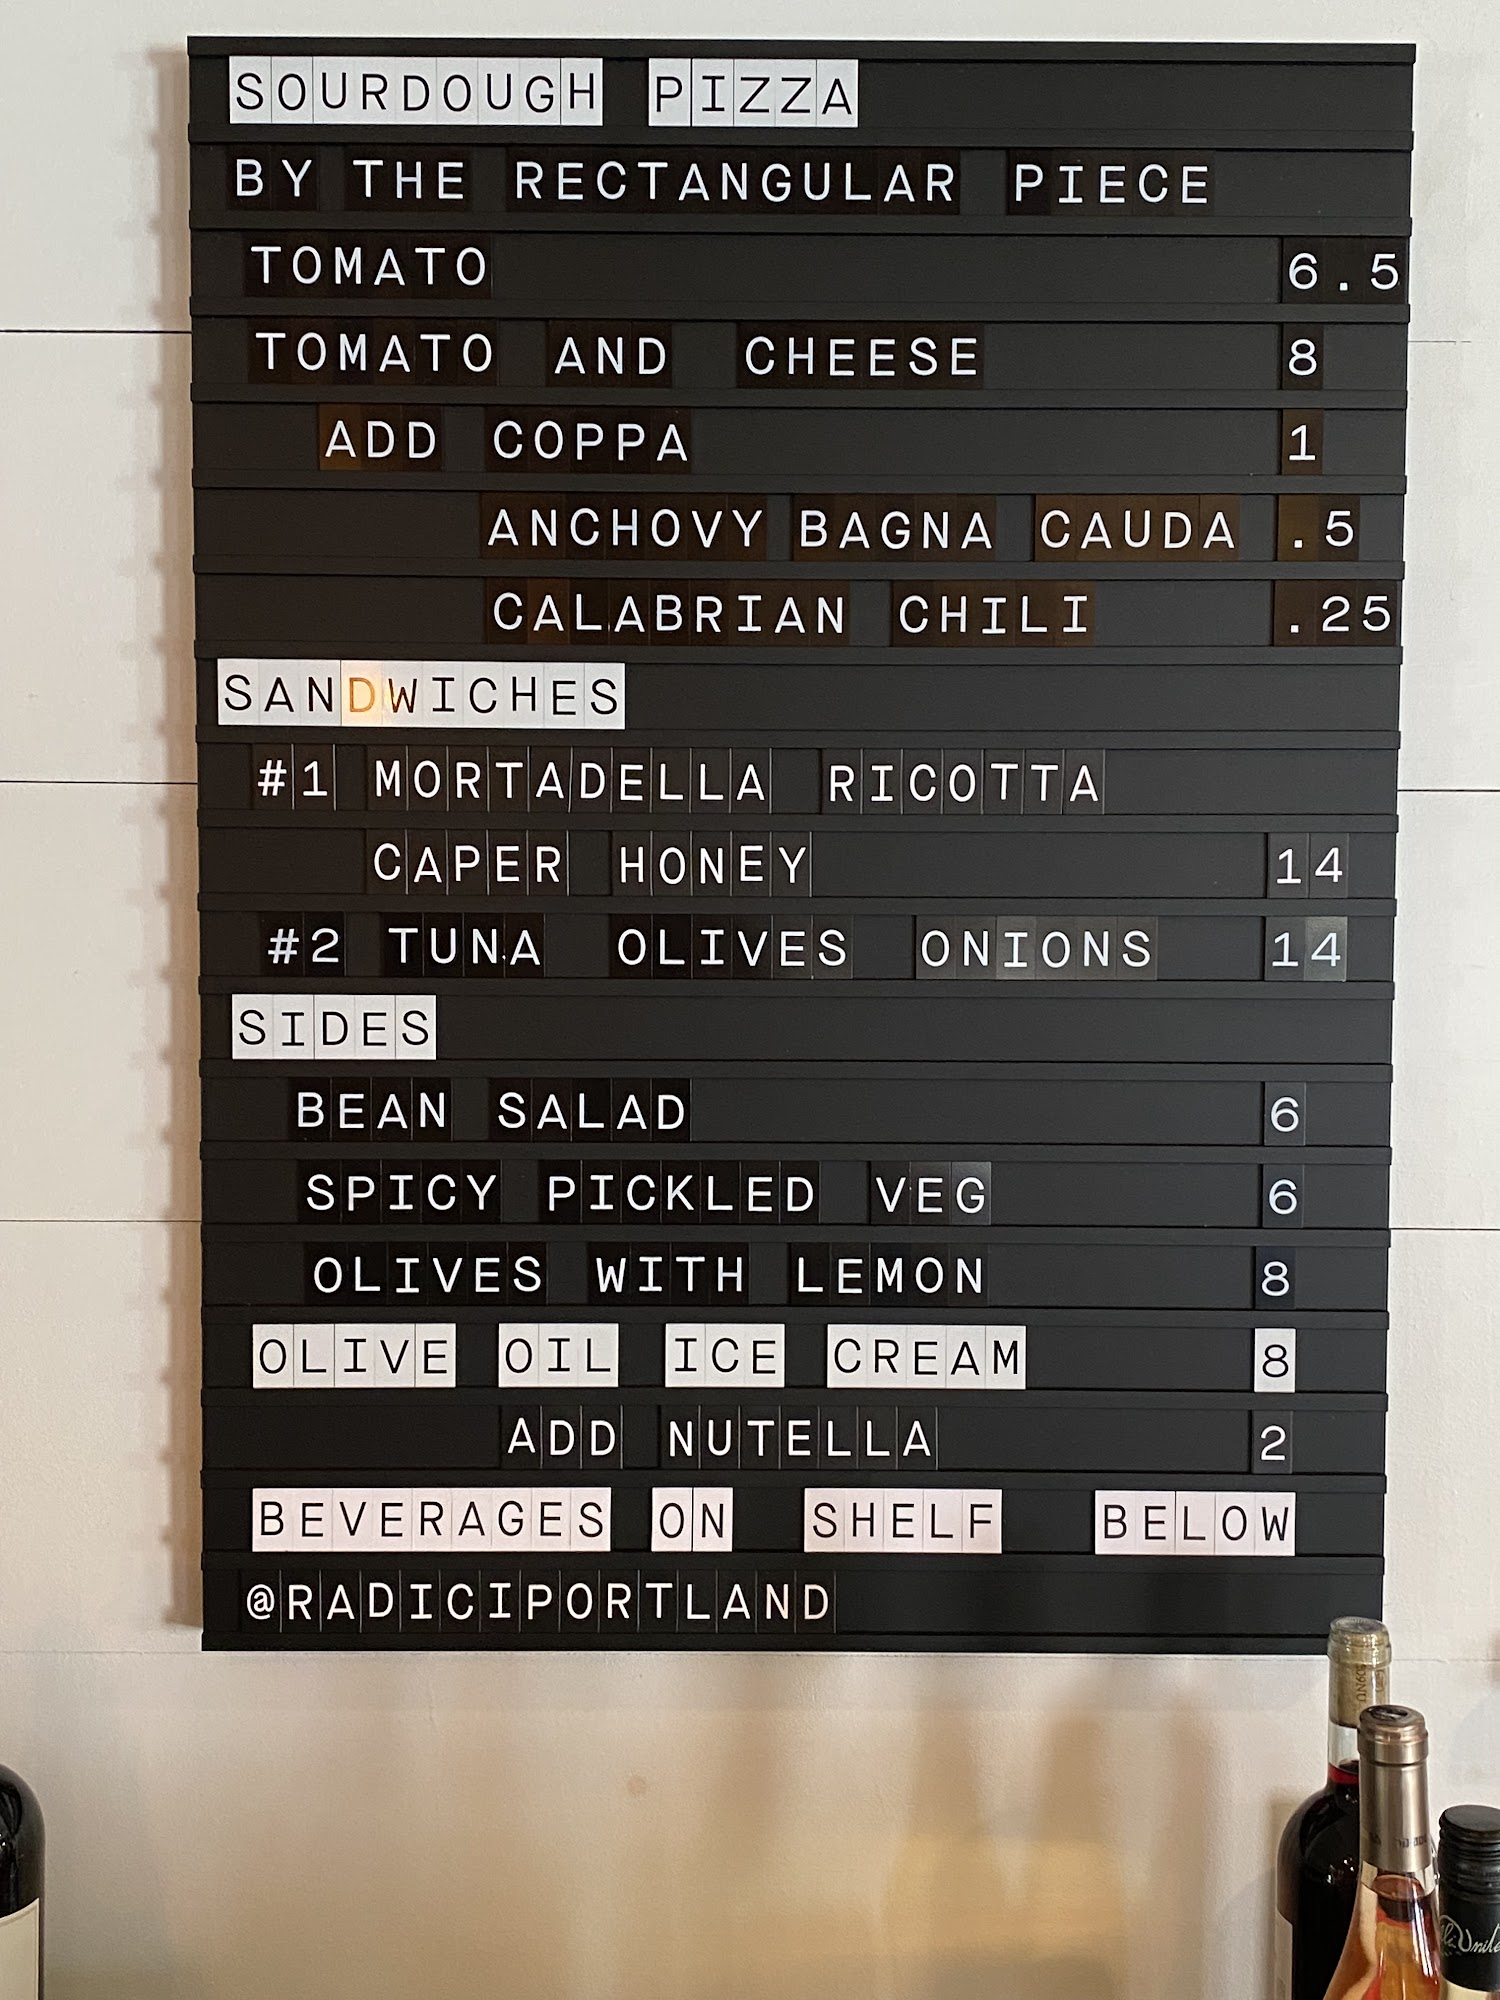 SOURDOUGH PIZZA
BY THE RECTANGULAR PIECE
TOMATO 6.5
TOMATO AND CHEESE 8
ADD COPPA 1
ANCHOVY BAGNA CAUDA .5
CALABRIAN CHILI .25
SANDWICHES
#1 MORTADELLA RICOTTA
CAPER HONEY 14
#2 TUNA OLIVES ONIONS 14
SIDES
BEAN SALAD 6
SPICY PICKLED VEG 6
OLIVES WITH LEMON 8
OLIVE OIL ICE CREAM 8
ADD NUTELLA 2
BEVERAGES ON SHELF BELOW
@RADICIPORTLAND